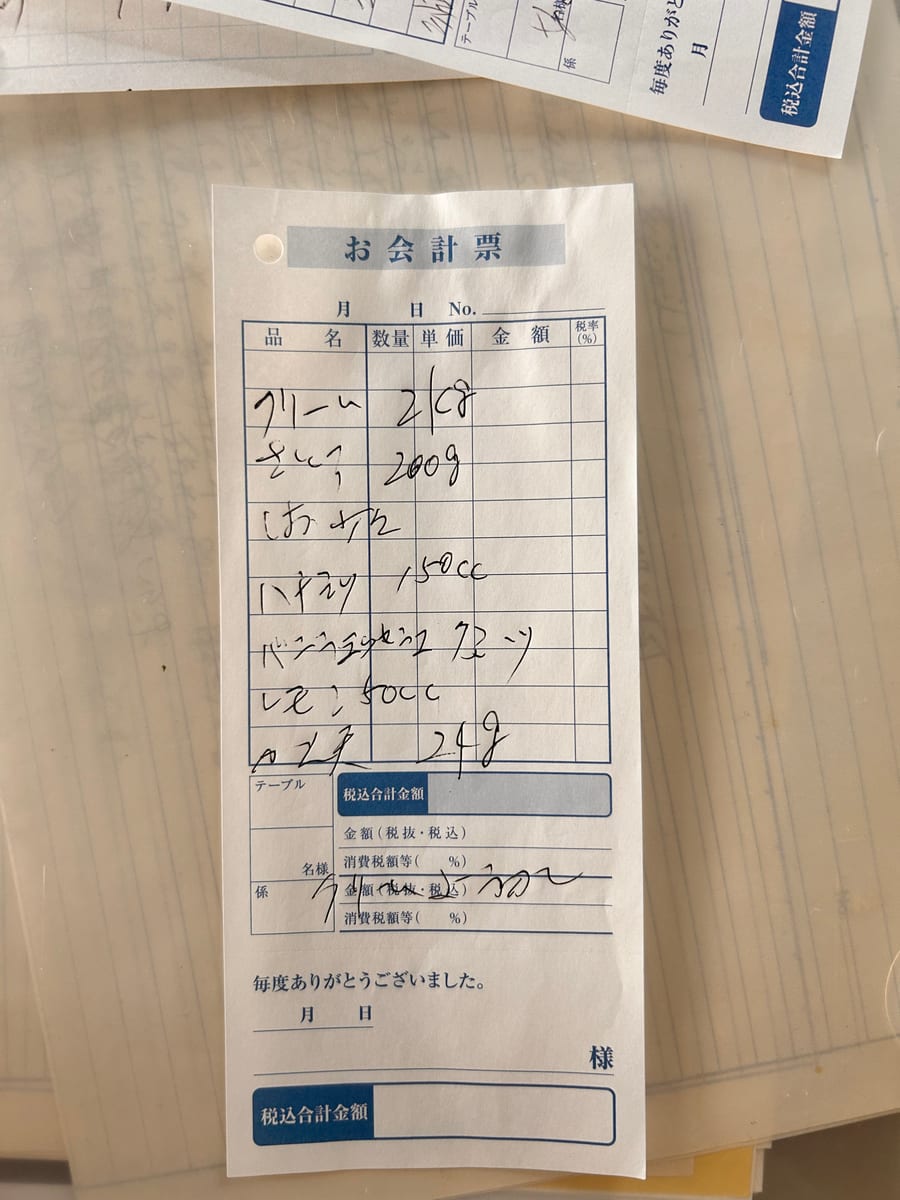 テーブル
係
毎度ありがと
月
税込合計金額
お会計票
月 日 No.
品名 数量 単価 金額 税率(%)
クリーム 2kg
さとう 200g
しお
ハチミツ 150cc
バニラエッセンス
レモン 50cc
カンテン 24g
テーブル
税込合計金額
金額(税抜・税込)
名様
消費税額等( %)
係
金額(税抜・税込)
消費税額等( %)
毎度ありがとうございました。
月 日
様
税込合計金額